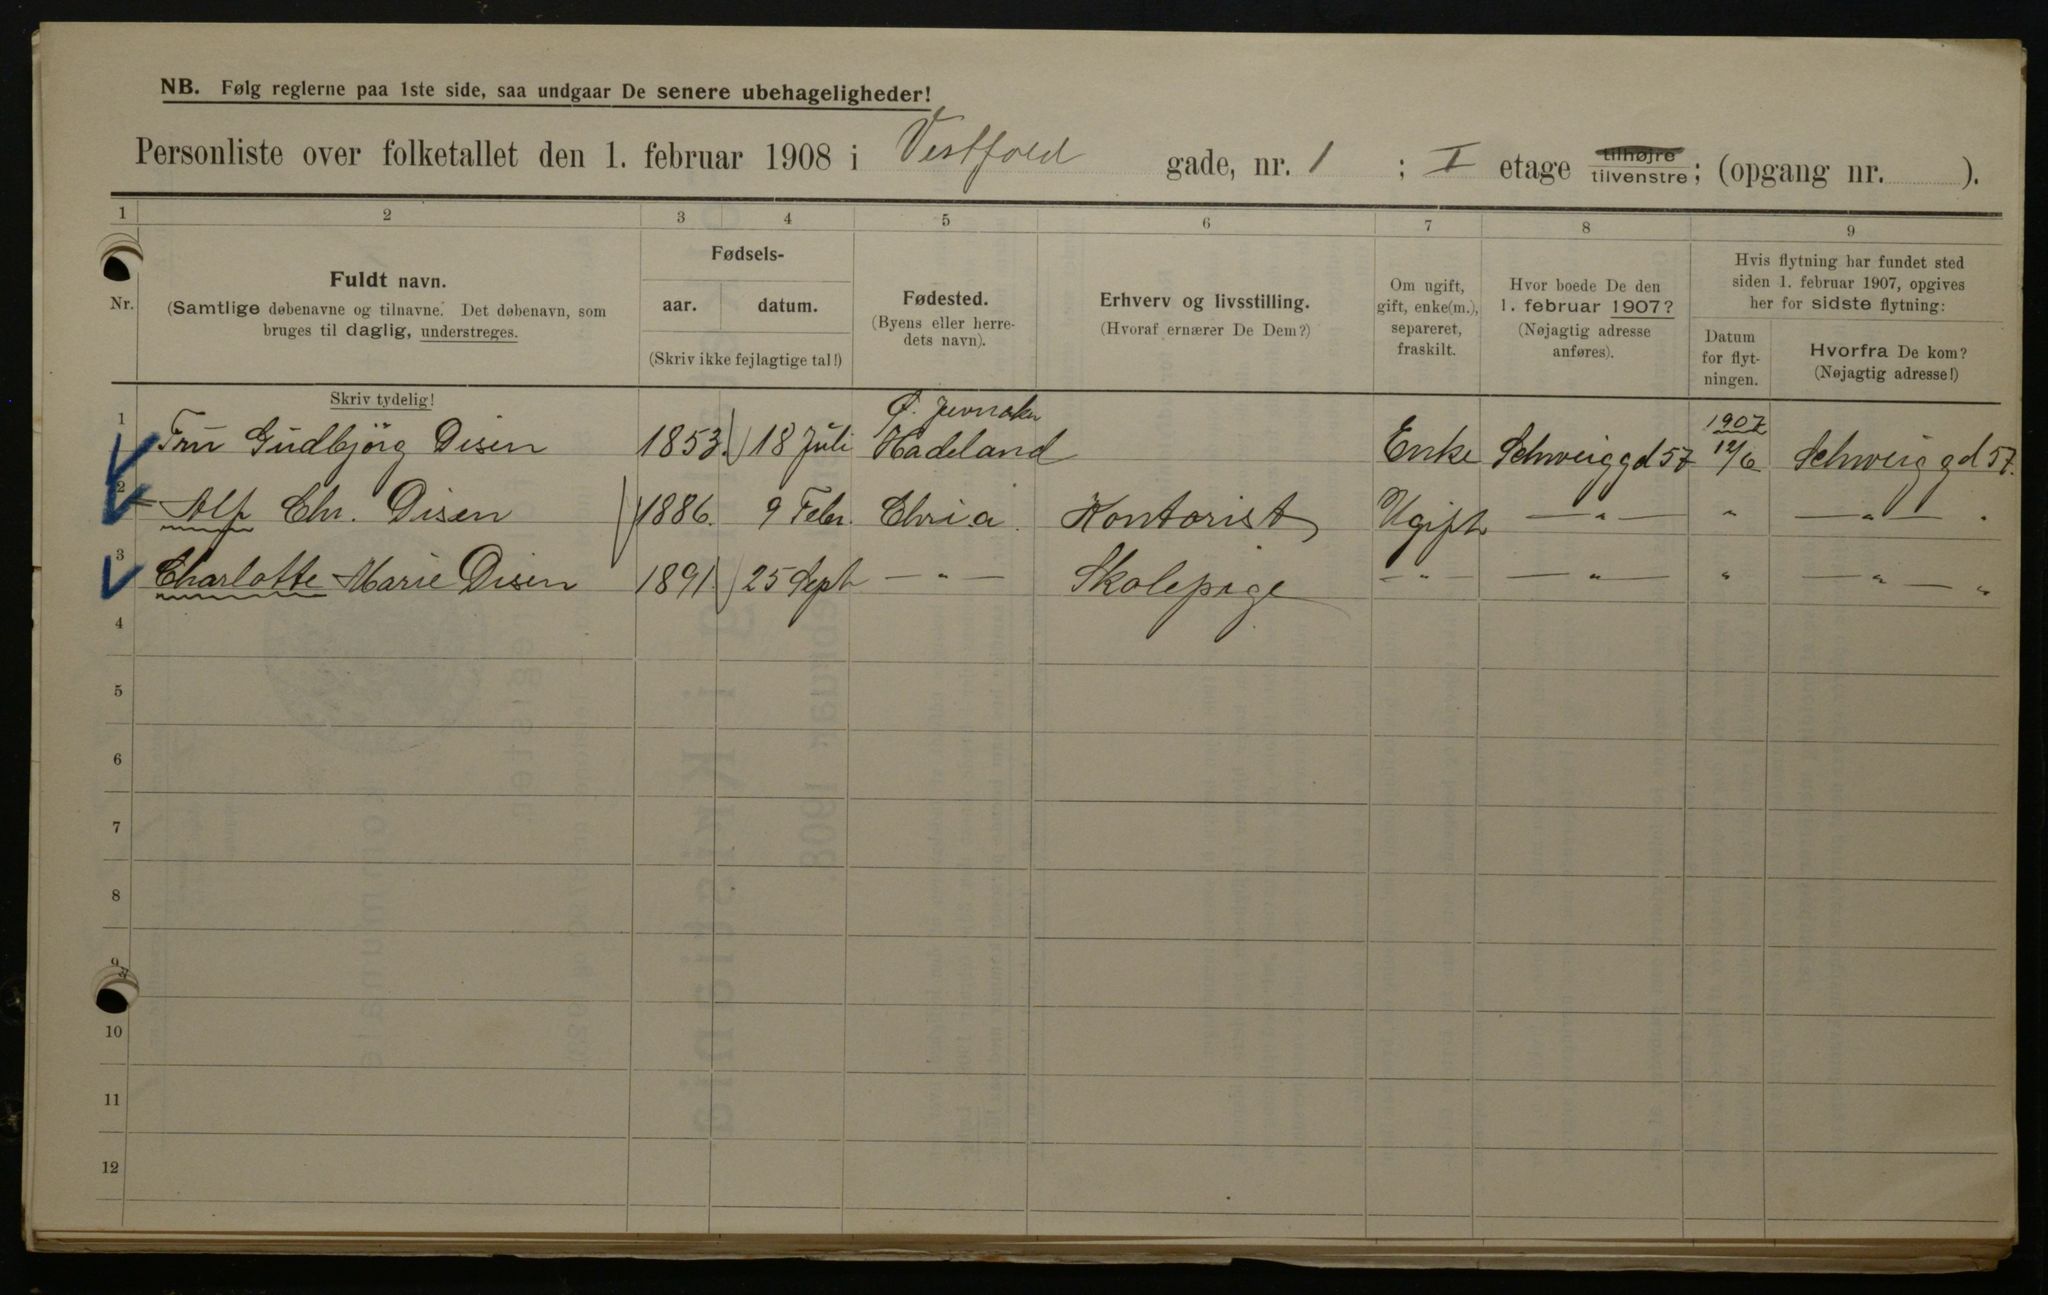 NB. Følg reglerne paa 1ste side, saa undgaar De senere ubehageligheder!
Personliste over folketallet den 1. februar 1908 i Vestfold gade, nr. 1 ; I etage tilhøjre tilvenstre; (opgang nr. ).
1 2 3 4 5 6 7 8 9
Nr.
Fuldt navn.
(Samtlige døbenavne og tilnavne. Det døbenavn, som
bruges til daglig, understreges.
Skriv tydelig!
Fødsels-
aar. datum.
(Skriv ikke fejlagtige tal!)
Fødested.
(Byens eller herre-
dets navn).
Erhverv og livsstilling.
(Hvoraf ernærer De Dem?)
Om ugift,
gift, enke(m.),
separeret,
fraskilt.
Hvor boede De den
1. februar 1907?
(Nøjagtig adresse
anføres).
Hvis flytning har fundet sted
siden 1. februar 1907, opgives
her for sidste flytning:
Datum
for flyt-
ningen.
Hvorfra De kom?
(Nøjagtig adresse!)
Ø. Jevnaker 1907
1 Fru Gudbjörg Disen 1853. 18 Juli Hadeland Enke Schweiggd 57 12/6 Schweiggd 57.
2 Alf Chr. Disen 1886. 9 Febr. Chria. Kontorist Ugift — " — " — " — "
3 Charlotte Marie Disen 1891. 25 Sept — " — Skolepige — " — — " — " — " — "
4
5
6
7
8
9
10
11
12